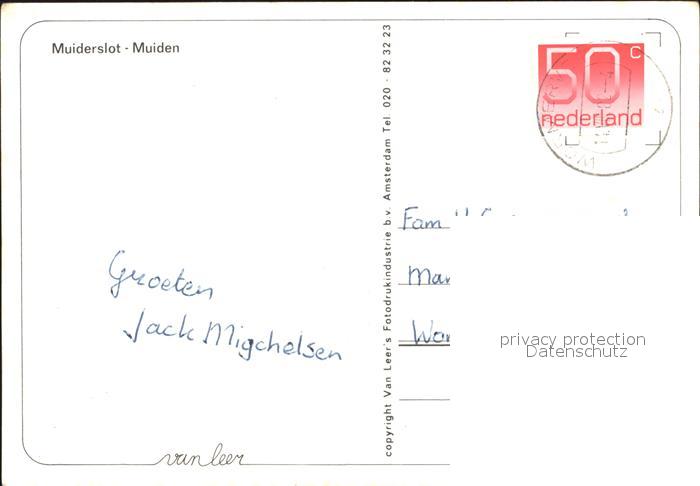 Muiderslot - Muiden
50 c
nederland
copyright Van Leer's Fotodrukindustrie b.v. Amsterdam Tel. 020 - 82 32 23
Groeten
Jack Migchelsen
Fam
privacy protection
Datenschutz
van leer